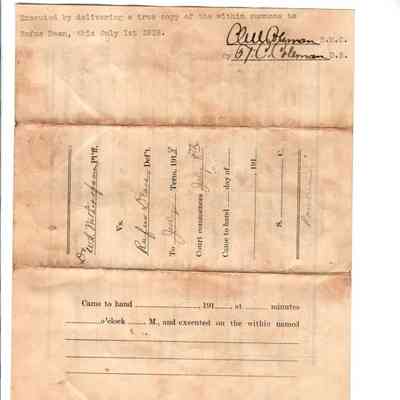 Executed by delivering a true copy of the within summons to
Rufus Dean, this July 1st 1918.
Coleman S.M.C.
by Coleman D.S.
Dr W S Plf'f.
Vs.
Rufus Def't.
To July Term, 1918
Court commences July 8th
Came to hand day of 191
S. C.
Came to hand , 191 , at minutes
o'clock M., and executed on the within named